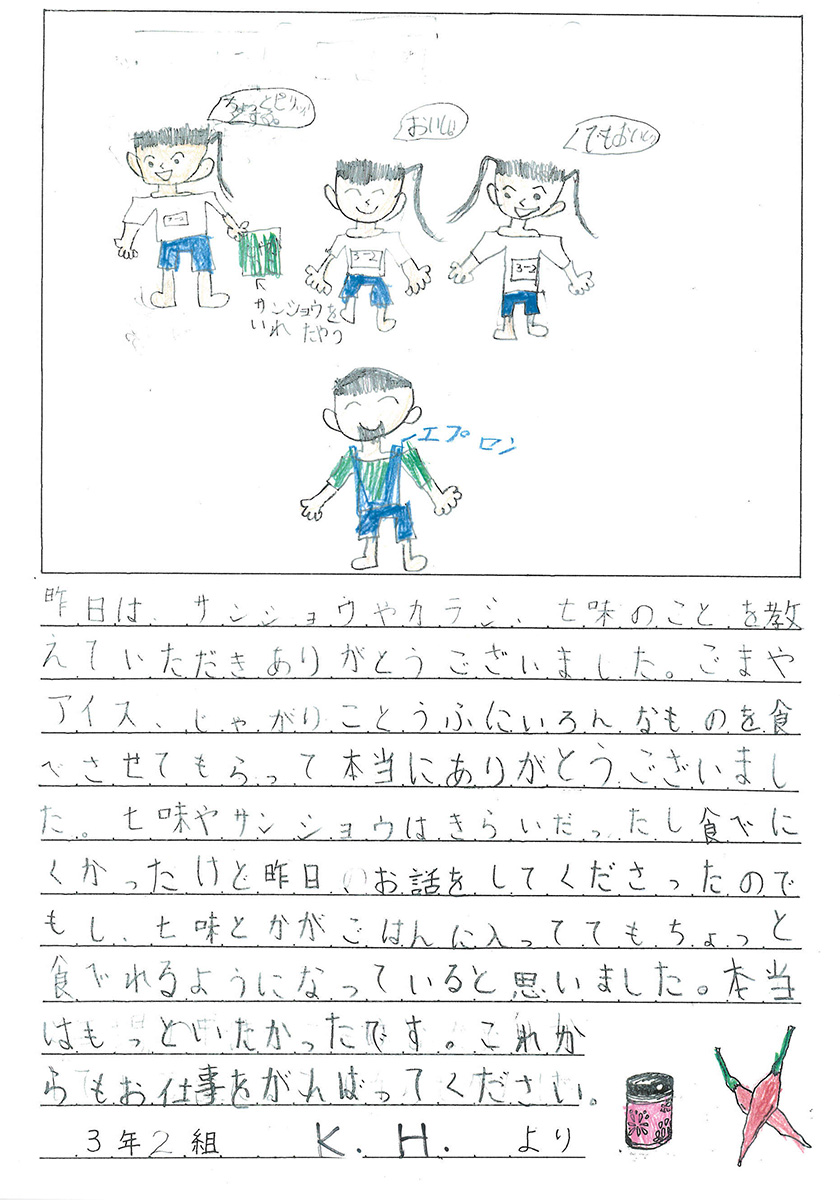 ちょっとピリッ
とする。
おいしい
とてもおいしい
3-2
3-2
サンショウを
いれたやつ
エプロン
昨日は、サンショウやカラシ、七味のことを教
えていただきありがとうございました。ごまや
アイス、じゃがりことうふにいろんなものを食
べさせてもらって本当にありがとうございまし
た。七味やサンショウはきらいだったし食べに
くかったけど昨日、お話をしてくださったので
もし、七味とかがごはんに入っててもちょっと
食べれるようになっていると思いました。本当
はもっといたかったです。これか
らもお仕事をがんばってください。
3年2組 K.H. より